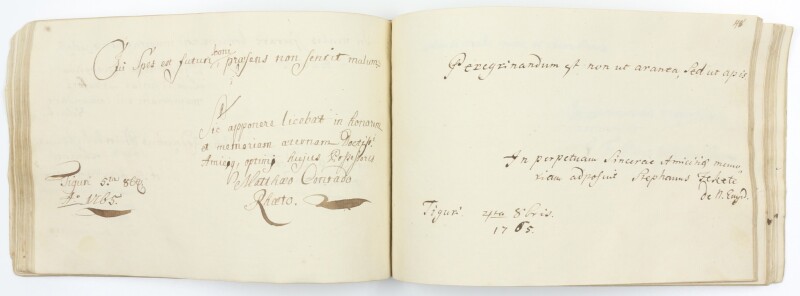 Cui Spes est futuri boni præsens non sentit malum.
Sic apponere licebat in honorem
& memoriam æternam Doctiss.
Amicique optimi hujus Possessoris
Matthæo Conrado
Rhæto.
Tiguri 5.ta 8bris
1765.
48
Peregrinandum est non ut aranea, Sed ut apis
In perpetuam Sincerae Amicitiæ memo
riam adposuit Stephanus Fekete
de N. Enyed.
Tiguri 4ta 8bris.
1765.